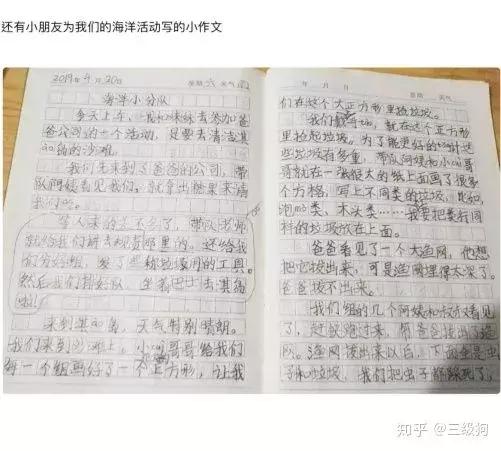 还有小朋友为我们的海洋活动写的小作文
2019年4月20日 星期六 天气
海洋小分队
今天上午,我和妹妹去参加爸
爸公司的一个活动,是要去清洁淇
ao岛的沙滩。
我们先来到了爸爸的公司,带
队阿姨看见我们,就拿出糖果来请
我们吃。
等人来的差不多了,带队老师
就给我们讲去那里的。还给我
们分好组,发了些称垃圾用的工具。
然后我们排好队,坐着巴士去淇ao岛
啦!
来到淇ao岛,天气特别晴朗。
我们来到沙滩上,小cai哥哥给我们
每一个组画好了一个正方形,让我
年 月 日 星期 天气
们在这个大正方形里捡垃圾。
我们戴,就在这个正方形
里捡起垃圾。为了能更好的统计这
些垃圾有多重,带队阿姨和小cai哥
哥就在一张很大的纸上面画了很多
个方格,写上不同类的垃圾,比如,
泡mò类、木头类……我要把类同
料的垃圾放在上面。
爸爸看见了一个大渔网,他想
把它拔出来,可是渔网埋得太深了,
爸爸拔不出来。
我们组的几个阿姨和叔叔看见
了,赶快跑过来,帮爸爸拔出了渔
网。渔网拔出来以后,下面全是虫
子和垃圾,我们把虫子都踩死了,
知乎 @三级狗